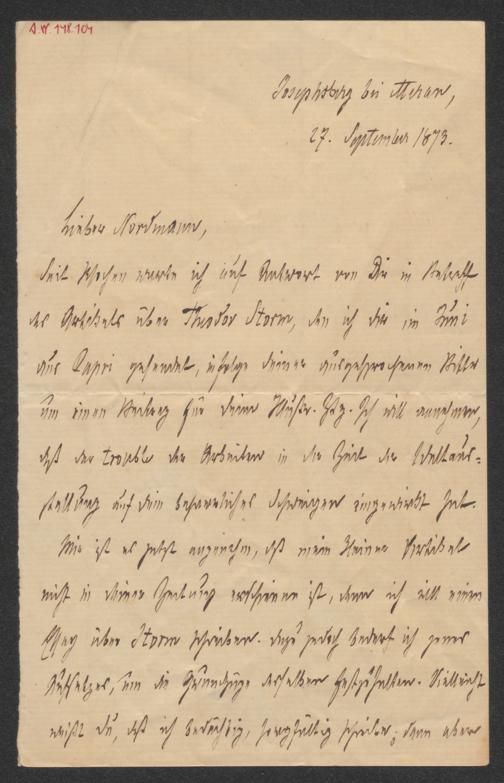 A.W. 148.104
Josephsberg bei Meran,
27. September 1873.
Lieber Nordmann,
Seit Wochen warte ich auf Antwort von Dir in Betreff
des Artikels über Theodor Storm, den ich dir im Juni
aus Capri gesendet, infolge deiner ausgesprochenen Bitte
um einen Beitrag für deine Illustr. Ztg. Ich will annehmen,
daß der trouble der Arbeiten in der Zeit der Weltaus=
stellung auf dein beharrliches Schweigen eingewirkt hat.
Mir ist es jetzt angenehm, daß mein kleiner Artikel
nicht in deiner Zeitung erschienen ist, denn ich will einen
Essay über Storm schreiben. Dazu jedoch bedarf ich jenes
Aufsatzes, um die Grundzüge desselben festzuhalten. Vielleicht
weißt du, daß ich bedächtig, sorgfältig schreibe; denn aber